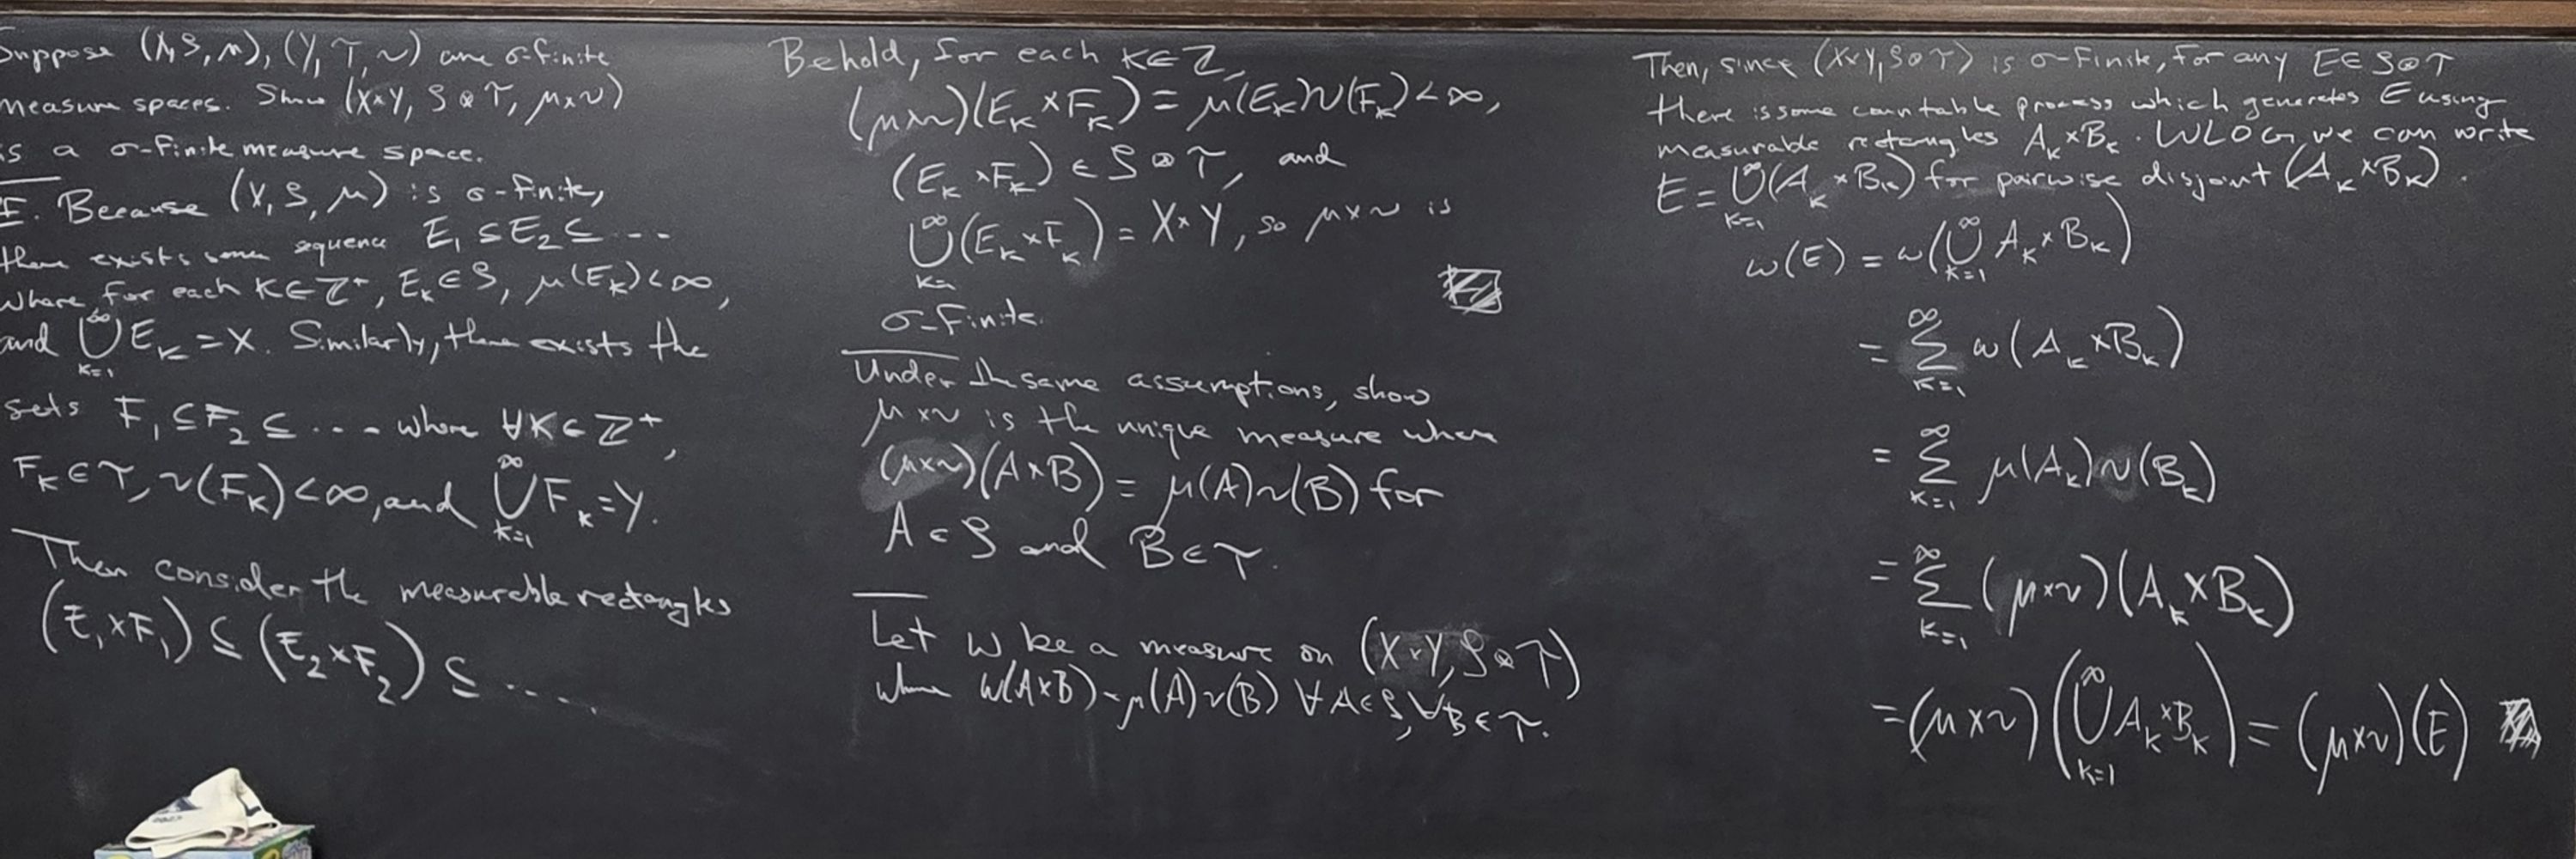 Suppose (X, S, μ), (Y, T, ν) are σ-finite
measure spaces. Show (X×Y, S ⊗ T, μ×ν)
is a σ-finite measure space.
Because (X, S, μ) is σ-finite,
there exists some sequence E₁ ⊆ E₂ ⊆ ...
where for each K ∈ Z⁺, E_K ∈ S, μ(E_K) < ∞,
and ⋃_{K=1}^∞ E_K = X. Similarly, there exists the
sets F₁ ⊆ F₂ ⊆ .... where ∀K ∈ Z⁺,
F_K ∈ T, ν(F_K) < ∞, and ⋃_{K=1}^∞ F_K = Y.
Then consider the measurable rectangles
(E₁×F₁) ⊆ (E₂×F₂) ⊆ ....
Behold, for each K ∈ Z,
(μ×ν)(E_K × F_K) = μ(E_K)ν(F_K) < ∞,
(E_K × F_K) ∈ S ⊗ T, and
⋃_{K=}^∞ (E_K × F_K) = X×Y, so μ×ν is
σ-finite.
Under the same assumptions, show
μ×ν is the unique measure where
(μ×ν)(A×B) = μ(A)ν(B) for
A ∈ S and B ∈ T.
Let ω be a measure on (X×Y, S⊗T)
where ω(A×B) = μ(A)ν(B) ∀A∈S, ∀B∈T.
Then, since (X×Y, S⊗T) is σ-finite, for any E ∈ S⊗T
there is some countable process which generates E using
measurable rectangles A_K×B_K. WLOG we can write
E = ⋃_{K=1}^∞ (A_K × B_K) for pairwise disjoint (A_K×B_K).
ω(E) = ω(⋃_{K=1}^∞ A_K × B_K)
= ∑_{K=1}^∞ ω(A_K×B_K)
= ∑_{K=1}^∞ μ(A_K)ν(B_K)
= ∑_{K=1}^∞ (μ×ν)(A_K×B_K)
= (μ×ν)(⋃_{K=1}^∞ A_K×B_K) = (μ×ν)(E)